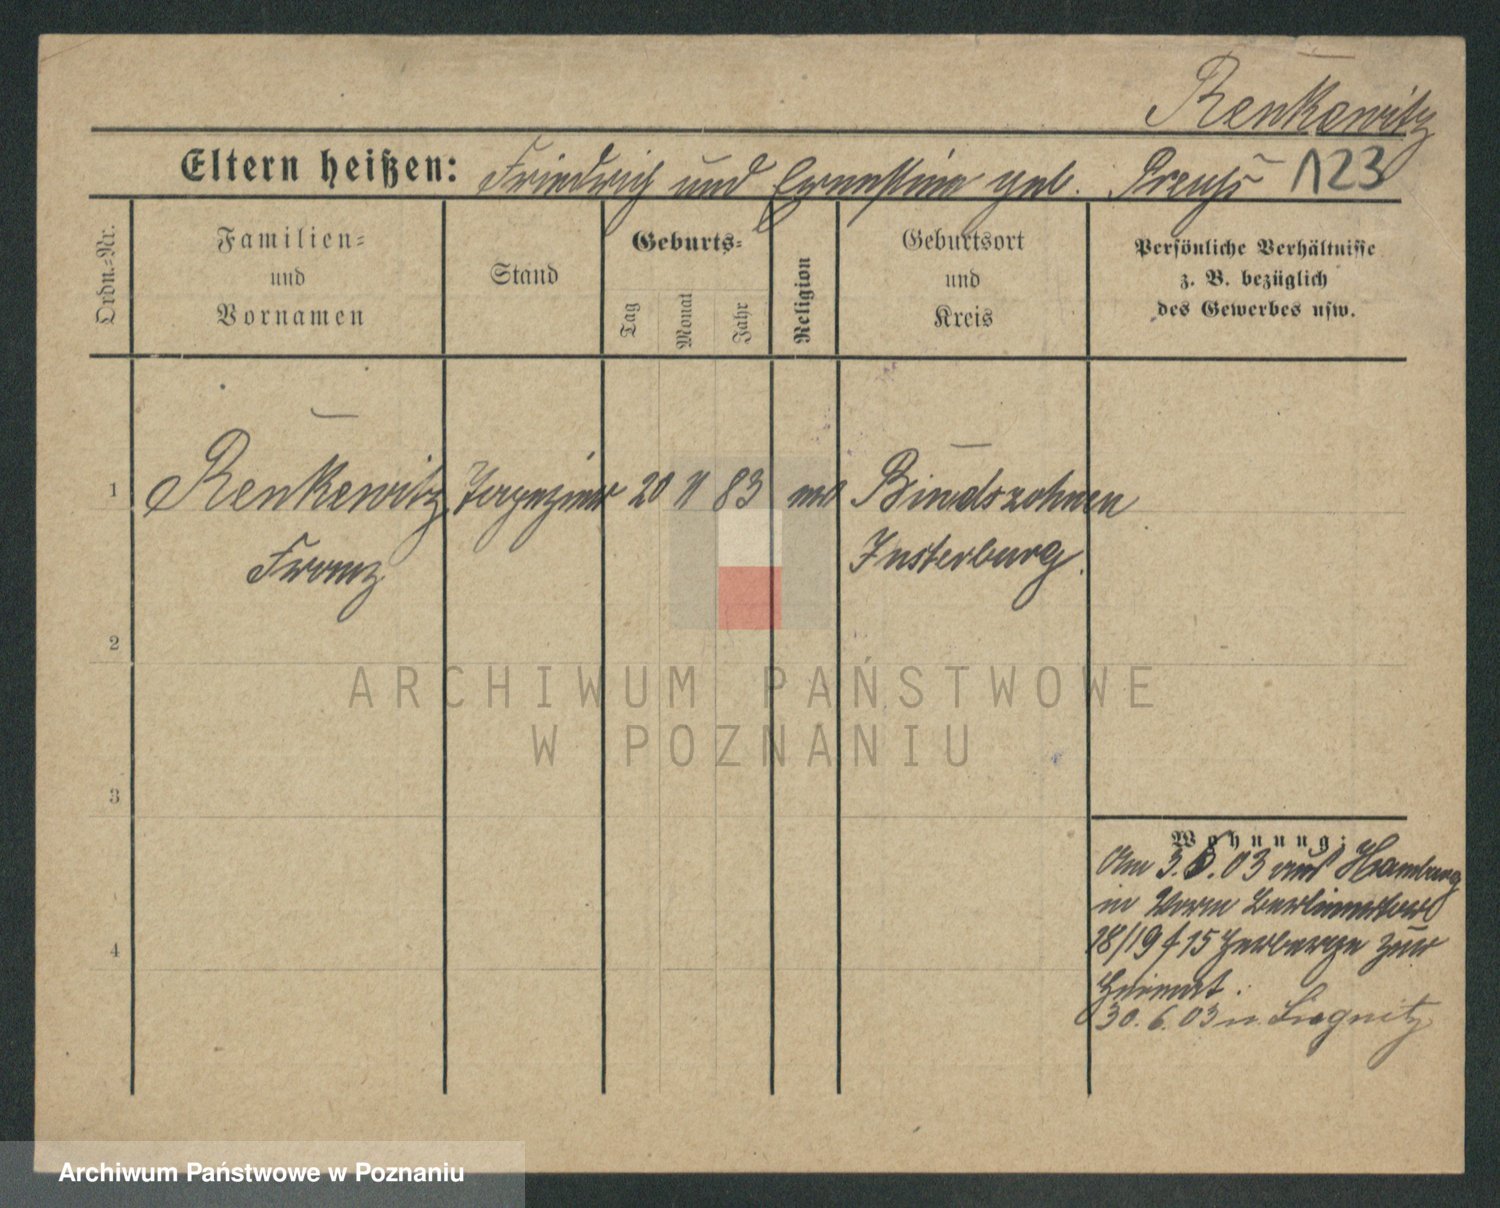 Renkewitz
Eltern heißen: Friedrich und Ernestine geb. Preuß 123
Ordn.-Nr.
Familien-
und
Vornamen
Stand
Geburts-
Tag
Monat
Jahr
Religion
Geburtsort
und
Kreis
Persönliche Verhältnisse
z. B. bezüglich
des Gewerbes usw.
1 Renkewitz Tapezierer 20 11 83 Bindszohnen
Franz Insterburg.
2
3
4
ARCHIWUM PAŃSTWOWE
W POZNANIU
Wohnung:
Am 3.6.03 aus Hamburg
in Berlinerthor
18/19 15 Herberge zur
Heimat.
30.6.03 n. Liegnitz
Archiwum Państwowe w Poznaniu